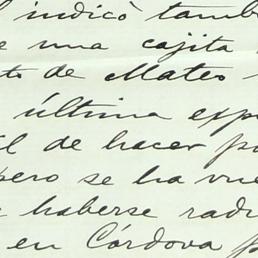 indicó tamb
e una cajita
to de Mateo
última exp
il de hacer p
pero se ha vue
e haberse rad
en Córdova p